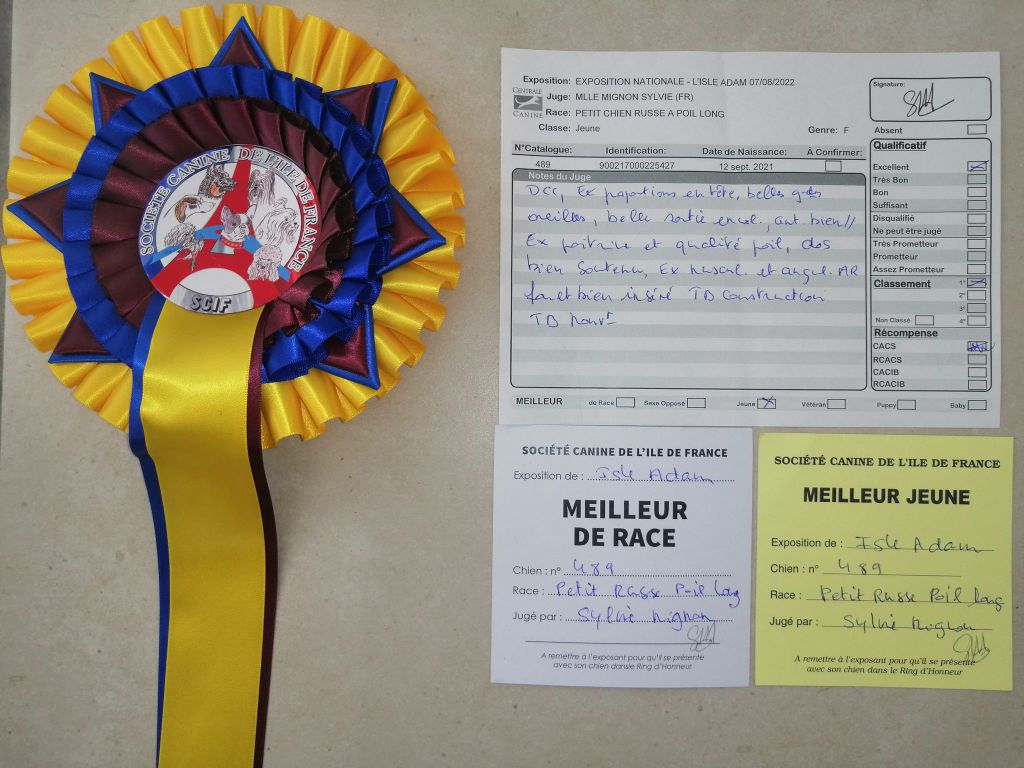 SOCIÉTÉ CANINE DE L'ILE DE FRANCE
SCIF
Exposition: EXPOSITION NATIONALE - L'ISLE ADAM 07/08/2022
CENTRALE
CANINE
Juge: MLLE MIGNON SYLVIE (FR)
Race: PETIT CHIEN RUSSE A POIL LONG
Classe: Jeune
Genre: F
Signature:
N°Catalogue: Identification: Date de Naissance: À Confirmer:
489 900217000225427 12 sept. 2021
Notes du Juge
DCC, Ex proportions en tête, belles gdes
oreilles, belle sortie encol, ant. bien //
Ex poitrine et qualité poil, dos
bien soutenu, Ex muscul. et angul. AR
fouet bien inséré TB Construction
TB mouvt
Absent
Qualificatif
Excellent
Très Bon
Bon
Suffisant
Disqualifié
Ne peut être jugé
Très Prometteur
Prometteur
Assez Prometteur
Classement 1°
2°
3°
Non Classé 4°
Récompense
CACS
RCACS
CACIB
RCACIB
MEILLEUR de Race Sexe Opposé Jeune Vétéran Puppy Baby
SOCIÉTÉ CANINE DE L'ILE DE FRANCE
Exposition de : Isle Adam
MEILLEUR
DE RACE
Chien : n° 489
Race : Petit Russe Poil long
Jugé par : Sylvie Mignon
A remettre à l'exposant pour qu'il se présente
avec son chien dansle Ring d'Honneur
SOCIÉTÉ CANINE DE L'ILE DE FRANCE
MEILLEUR JEUNE
Exposition de : Isle Adam
Chien : n° 489
Race : Petit Russe Poil long
Jugé par : Sylvie Mignon
A remettre à l'exposant pour qu'il se présente
avec son chien dans le Ring d'Honneur